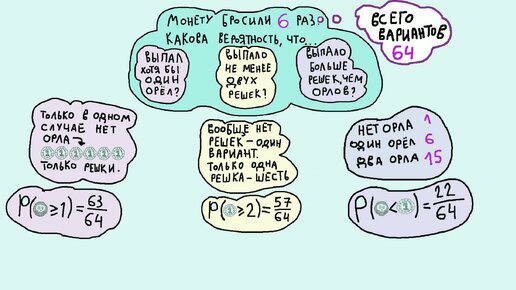 МОНЕТУ БРОСИЛИ 6 РАЗ.
КАКОВА ВЕРОЯТНОСТЬ, ЧТО...
ВСЕГО
ВАРИАНТОВ
64
ВЫПАЛ
ХОТЯ БЫ
ОДИН
ОРЁЛ?
ВЫПАЛО
НЕ МЕНЕЕ
ДВУХ
РЕШЕК?
ВЫПАЛО
БОЛЬШЕ
РЕШЕК, ЧЕМ
ОРЛОВ?
ТОЛЬКО В ОДНОМ
СЛУЧАЕ НЕТ
ОРЛА →
1 1 1 1 1 1
ТОЛЬКО РЕШКИ.
ВООБЩЕ НЕТ
РЕШЕК - ОДИН
ВАРИАНТ.
ТОЛЬКО ОДНА
РЕШКА - ШЕСТЬ
НЕТ ОРЛА 1
ОДИН ОРЁЛ 6
ДВА ОРЛА 15
P( ≥1)=63/64
P(1≥2)=57/64
P( <1)=22/64